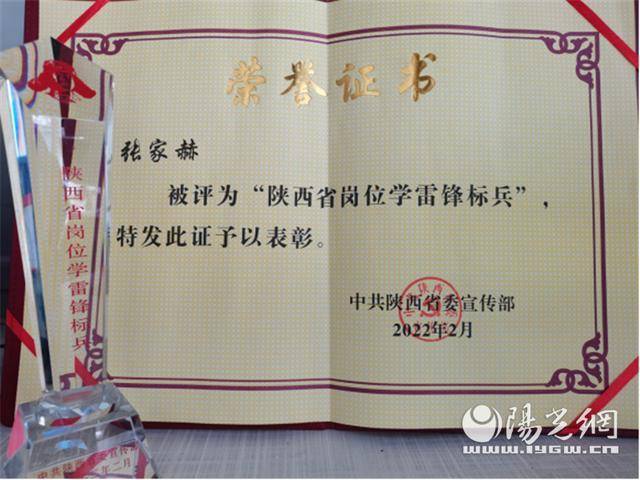 荣誉证书
张家赫
被评为“陕西省岗位学雷锋标兵”，
特发此证予以表彰。
中共陕西省委宣传部
2022年2月
陕西省岗位学雷锋标兵
中共陕西省委宣传部
年二月
陽光網
www.iygw.cn